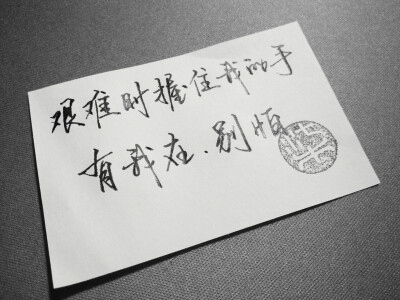 艰难时握住我的手
有我在.别怕